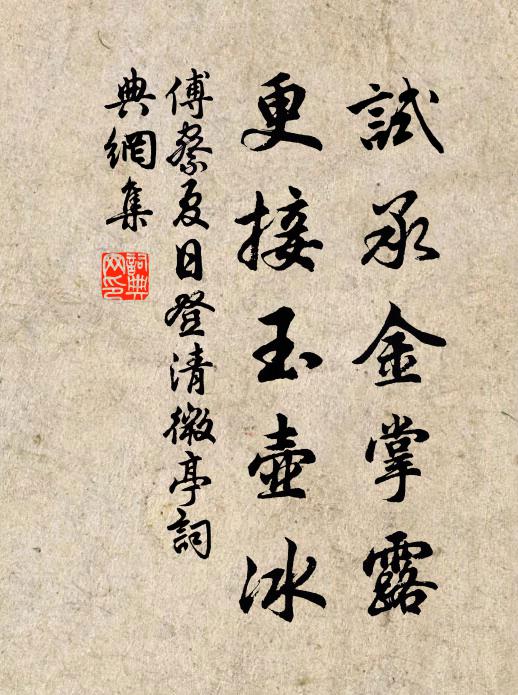 試承金掌露
更接玉壺冰
傅察夏日登清微亭詞
典網集
詞典
网印